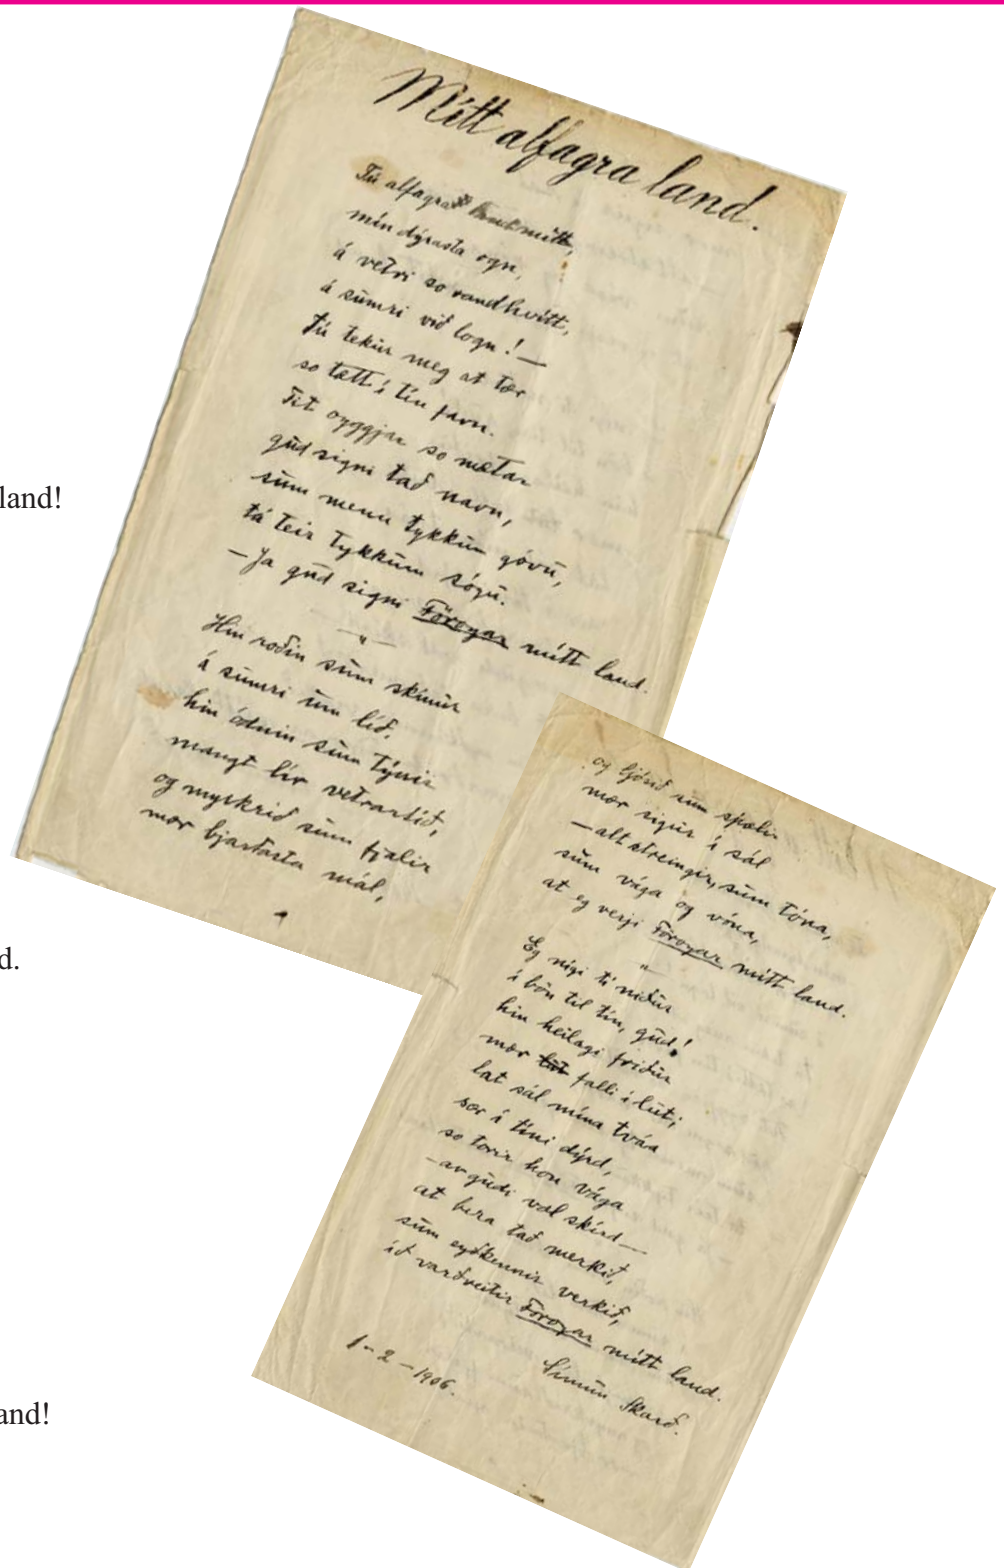 land!
d.
and!
Mítt alfagra land.
Tú alfagra land mítt,
mín dýrasta ogn,
á vetri so randhvítt,
á sùmri við logn! —
Tú tekùr meg at tær
so tætt í tín favn.
Tit oyggjar so mætar
gùd signi tað navn,
sùm menn tykkùn góvù,
tá teir tykkùm sógù.
— Ja gùd signi Föroyar mítt land.
— " —
Hin roðin sùm skínùr
á sùmri ùm líð,
hin ódnin sùm týnir
mangt lív vetrartíð,
og myrkrið sùm fjalir
mær bjartasta mál,
og ljósið sùm spælir
mær sigùr í sál
— alt streingir, sùm tóna,
sùm vága og vóna,
at eg verji Föroyar mítt land.
"
Eg nígi tí niðùr
í bön til tín, gùd!
hin heilagi friðùr
mær falli í lùt;
lat sál mína tváa
sær í tíni dýrd,
so torir hon vága
— av gùdi væl skírd —
at bera tað merkið,
sùm eyðkennir verkið,
ið varðveitir Föroyar mítt land.
1 - 2 - 1906.
Símùn Skarð.